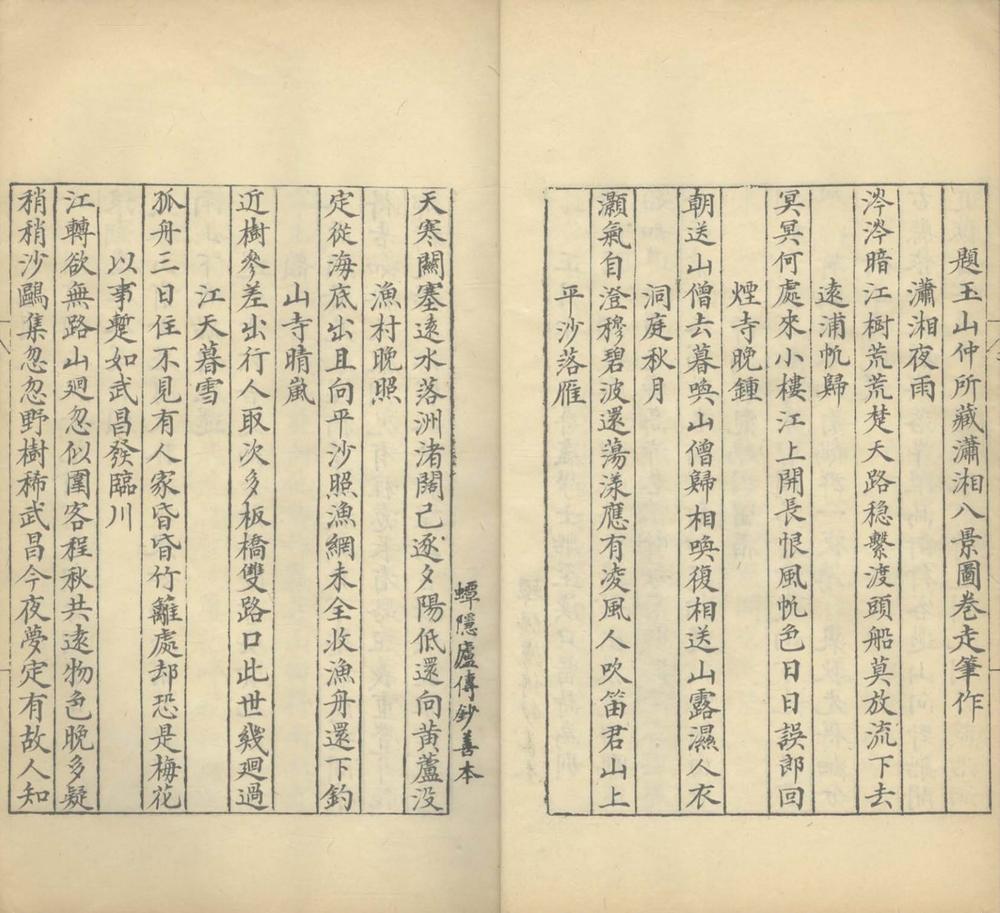 題玉山仲所藏瀟湘八景圖卷走筆作
瀟湘夜雨
涔涔暗江樹荒荒楚天路穏繫渡頭船莫放流下去
遠浦帆歸
冥冥何處來小樓江上開長恨風帆色日日誤郎回
煙寺晚鍾
朝送山僧去暮喚山僧歸相喚復相送山露濕人衣
洞庭秋月
灝氣自澄穆碧波還蕩漾應有凌風人吹笛君山上
平沙落雁
天寒關塞遠水落洲渚闊已逐夕陽低還向黃蘆沒
漁村晚照
定從海底出且向平沙照漁網未全收漁舟還下釣
山寺晴嵐
近樹參差出行人取次多板橋雙路口此世幾廻過
江天暮雪
孤舟三日住不見有人家昏昏竹籬處却恐是梅花
以事蹔如武昌發臨川
江轉欲無路山廻忽似圍客程秋共遠物色晚多疑
稍稍沙鷗集忽忽野樹稀武昌今夜夢定有故人知
蟫隱廬傳鈔善本